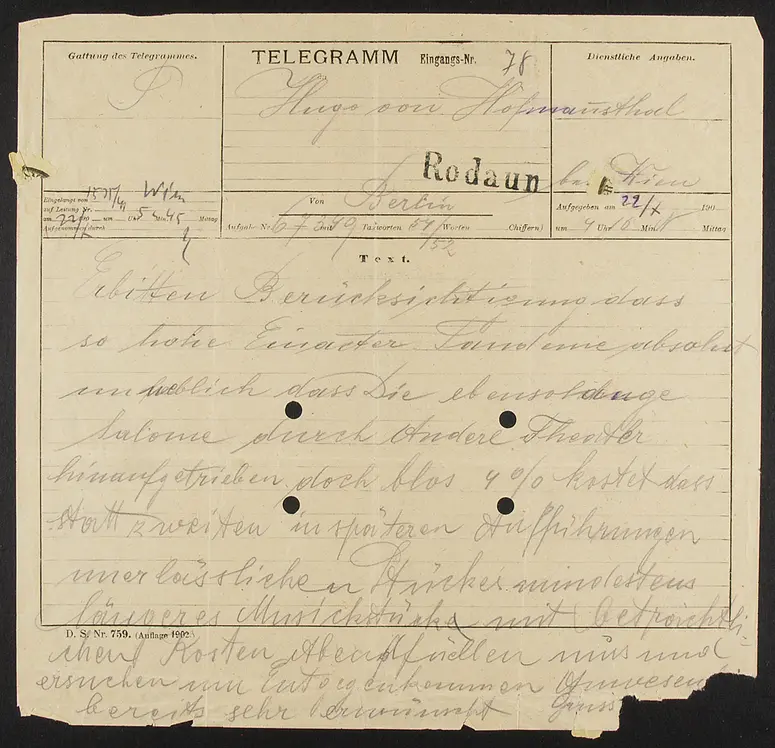 Gattung des Telegrammes.
TELEGRAMM Eingangs-Nr. 78
Dienstliche Angaben.
Hugo von Hofmannsthal
Rodaun bei Wien
Eingelangt von
auf Leitung Nr.
am 22/X 190 um Uhr 5 Min 45 Mittag
Aufgenommen durch
Von Berlin
Aufgabe-Nr. mit Taxworten Worten Chiffern)
Aufgegeben am 22/X 190
um 4 Uhr 10 Min Mittag
Text.
Erbitten Berücksichtigung dass
so hohe Einacter Tandeme absolut
unüblich dass Die ebensolange
Salome durch Andere Theater
hinaufgetrieben doch blos 4 % kostet dass
statt zweiten in späteren Aufführungen
unerlässlichen Stückes mindestens
längeres Musickstück mit beträchtli-
chen Kosten Abendfüllen mus und
D. S. Nr. 759. (Auflage 1902.)
ersuchen um Entgegenkommen
bereits sehr erwünscht Gruss